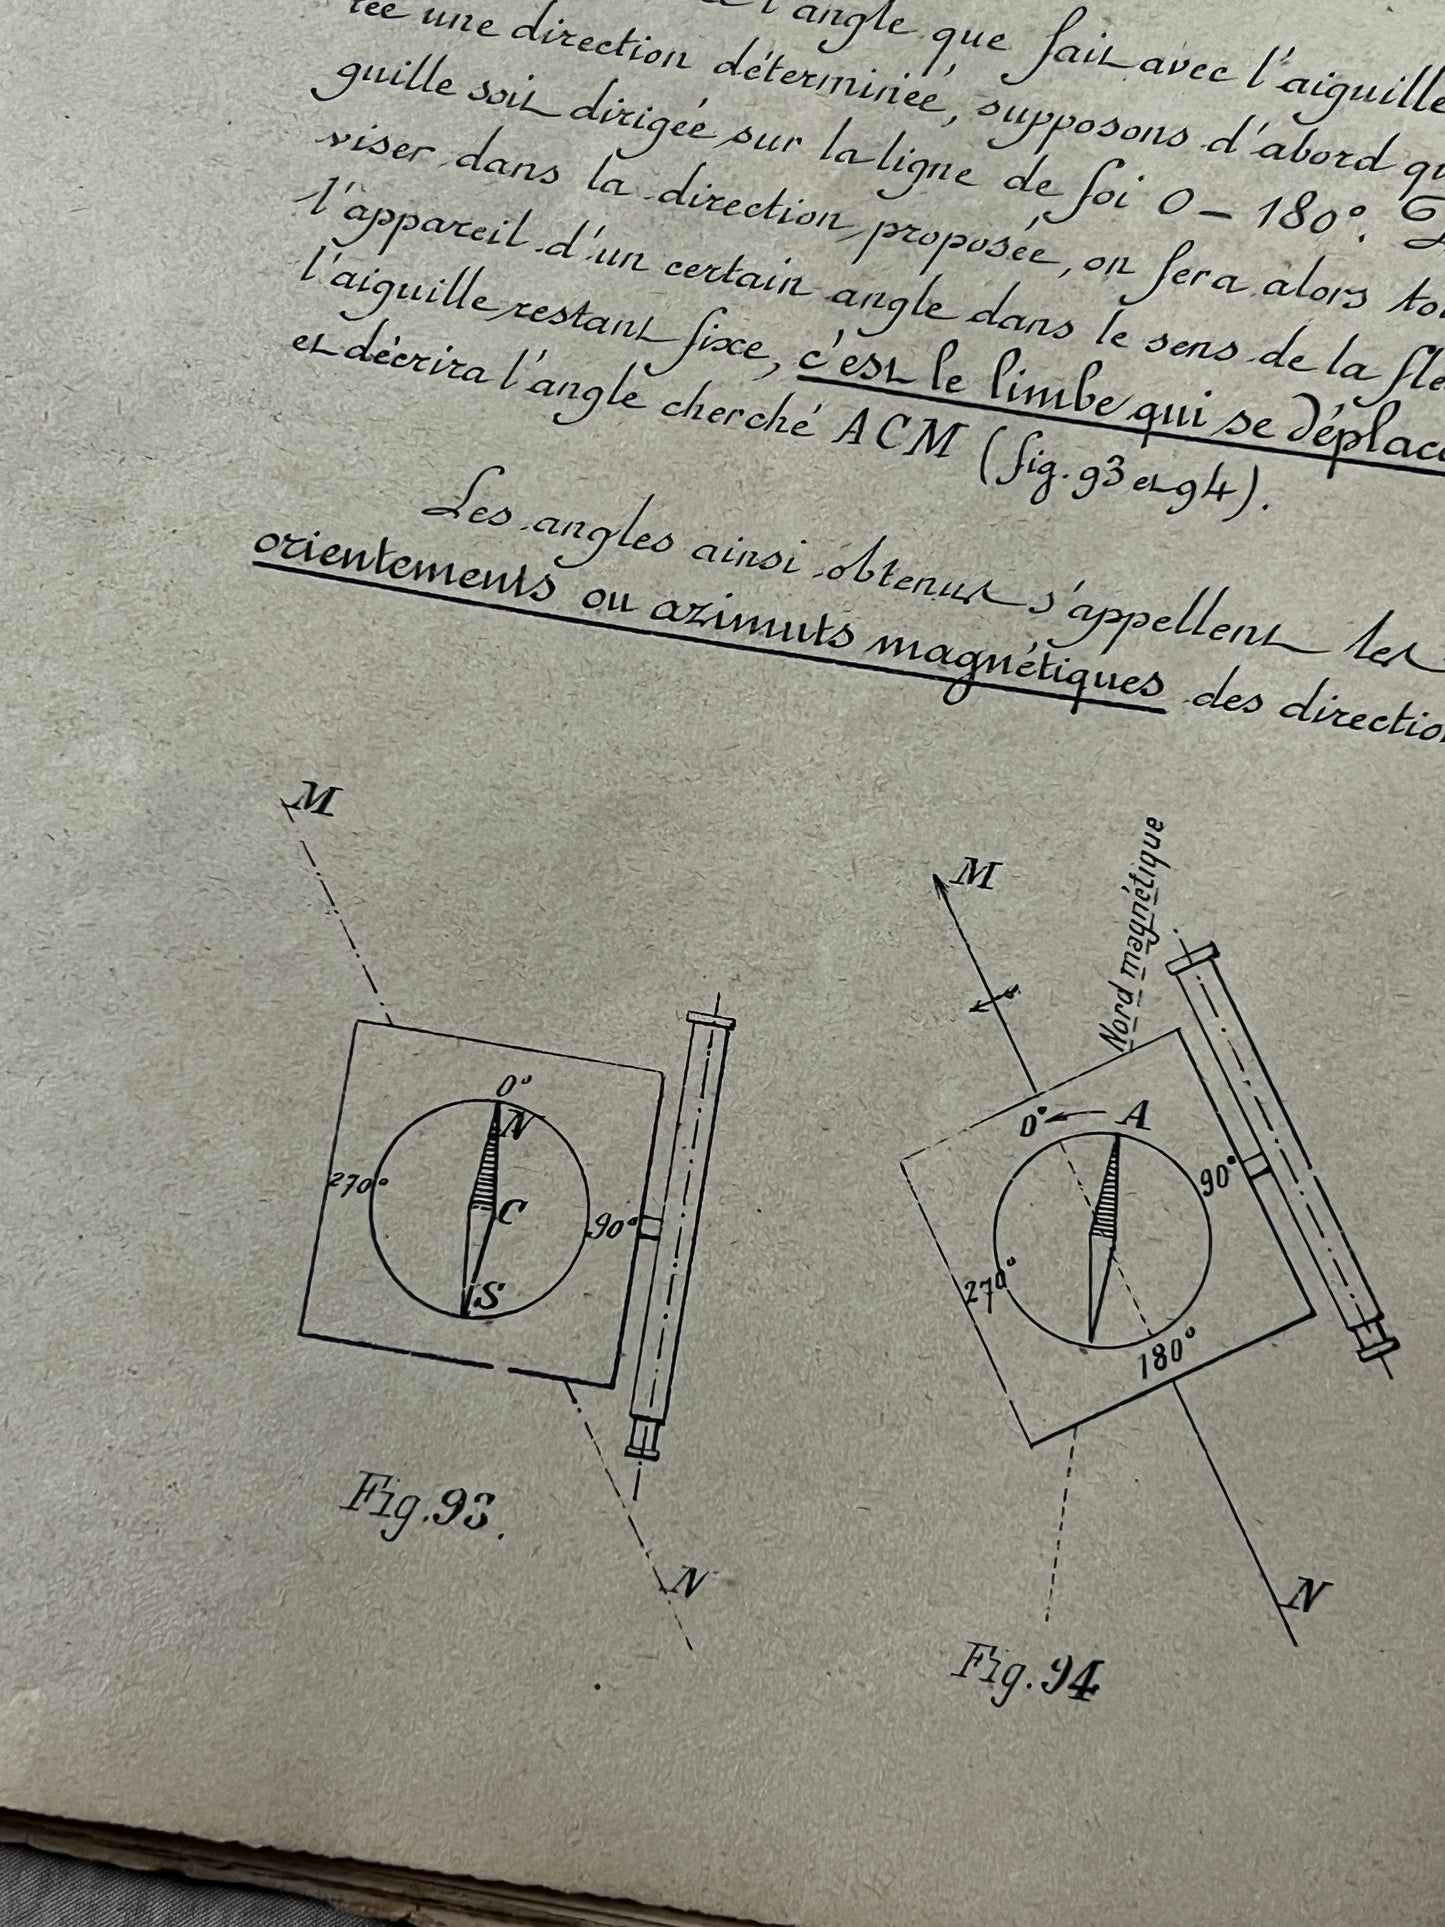 l'angle que fait avec l'aiguille
une direction déterminée, supposons d'abord
guille soit dirigée sur la ligne de foi 0 - 180°.
viser dans la direction proposée, on fera alors
l'appareil d'un certain angle dans le sens de la
l'aiguille restant fixe, c'est le limbe qui se déplace
et décrira l'angle cherché ACM (fig. 93 et 94).
Les angles ainsi obtenus s'appellent les
orientements ou azimuts magnétiques des
M
0°
N
270°
C
90°
S
N
Fig. 93.
M
Nord magnétique
0°
A
90°
270°
180°
N
Fig. 94